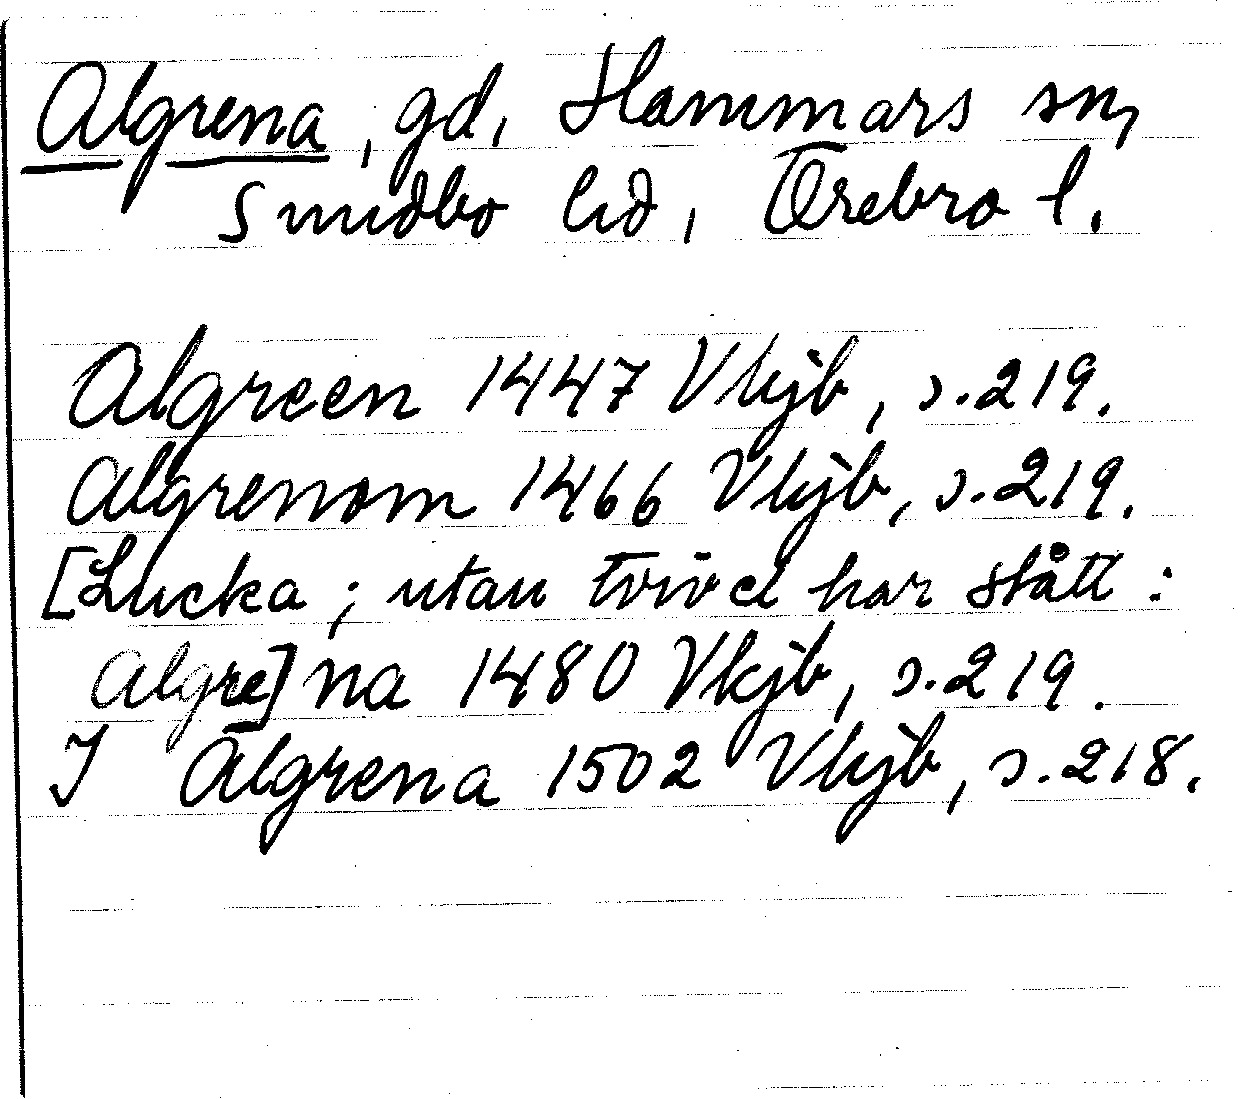 Algrena, gd, Hammars sn,
Sundbo hd, Örebro l.
Algreen 1447 Vkjb, s. 219.
Algrenom 1466 Vkjb, s. 219.
[Lucka; utan tvivel har stått:
Algre]na 1480 Vkjb, s. 219.
J Algrena 1502 Vkjb, s. 218.